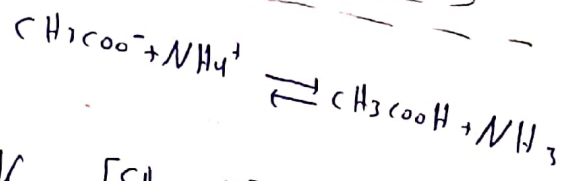 CH3COO⁻ + NH4⁺ ⇌ CH3COOH + NH3